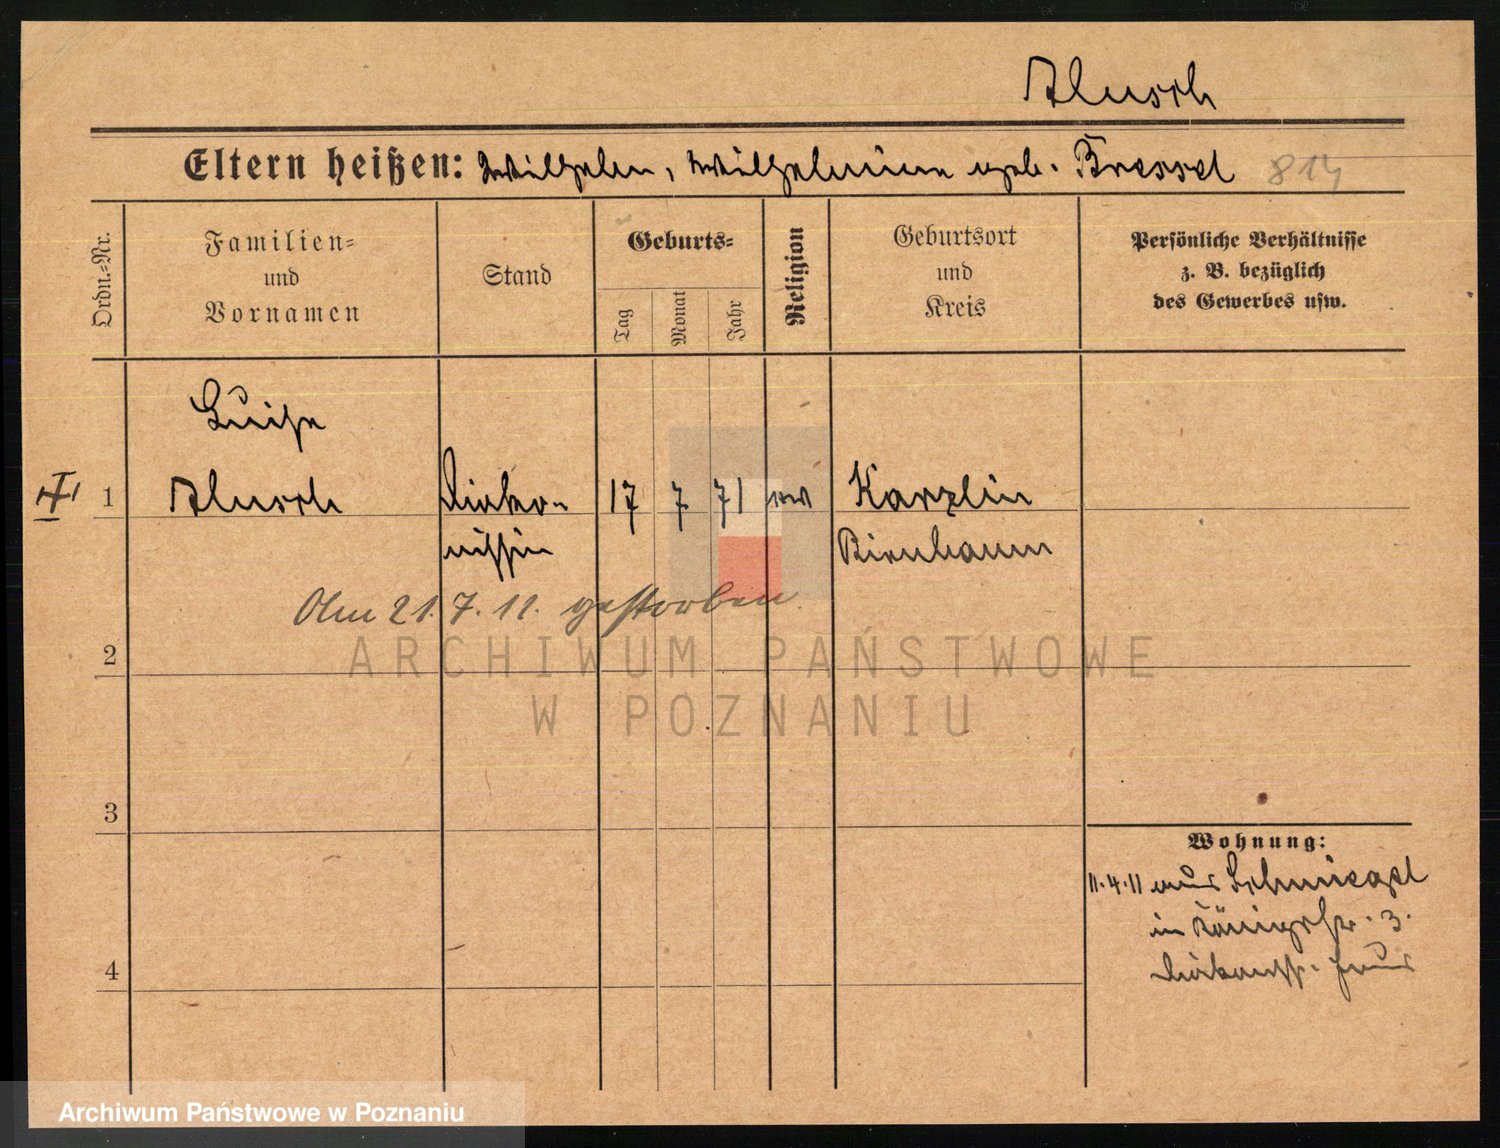 Klusch
Eltern heißen: Wilhelm, Wilhelmine geb. Bressel 814
Ordn.=Nr.
Familien=
und
Vornamen
Stand
Geburts=
Tag
Monat
Jahr
Religion
Geburtsort
und
Kreis
Persönliche Verhältnisse
z. B. bezüglich
des Gewerbes usw.
Luise
1 Klusch Diako- 17 7 71 ev Karzlin
nissin Birnbaum
Am 21. 7. 11. gestorben
ARCHIWUM PAŃSTWOWE
W POZNANIU
2
3
4
Wohnung:
11.4.11 aus
in Königstr. 3.
Archiwum Państwowe w Poznaniu